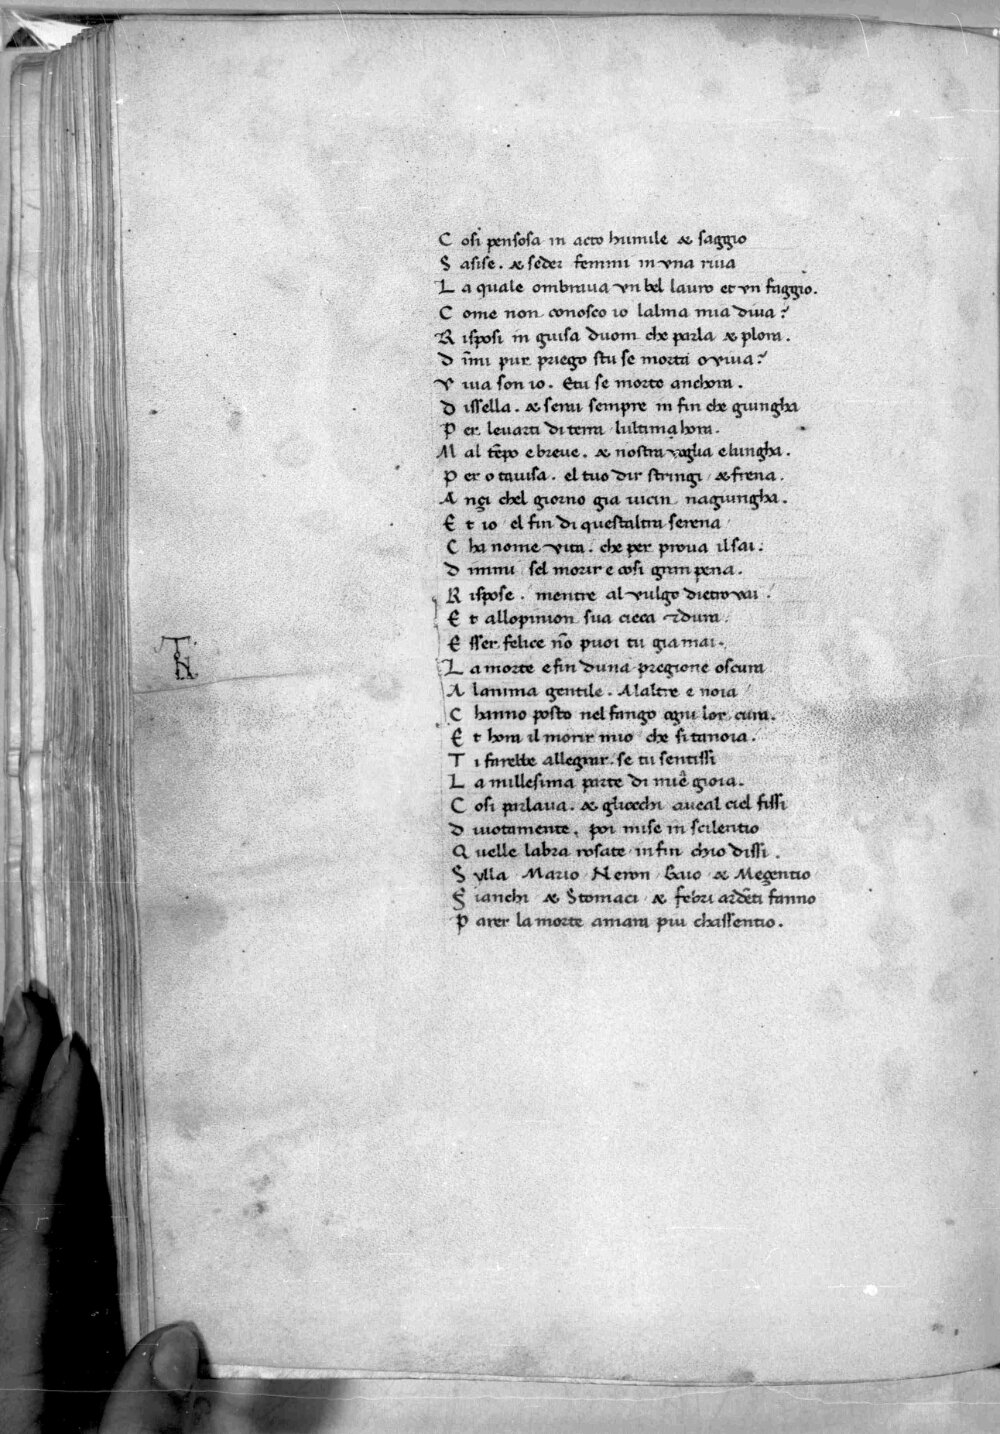 C osi pensosa in acto humile & saggio
S asise. & seder femmi in vna riua
L a quale ombraua vn bel lauro et vn faggio.
C ome non conosco io lalma mia diua?
R isposi in guisa duom che parla & plora.
D im̄i pur priego stu se morta o viua?
V iua son io. Etu se morto anchora.
D issella. & serai sempre in fin che giungha
P er leuarti di terra lultima hora.
M al tēpo e breue. & nostra voglia e lungha.
P er o tauisa. el tuo dir stringi & frena.
A nçi chel giorno gia uicin nagiungha.
E t io el fin di questaltra serena
C ha nome vita. che per proua il sai:
D immi sel morir e cosi gran pena.
R ispose. mentre al vulgo dietro vai.
E t allopinion sua cieca & dura.
E sser felice nō puoi tu gia mai.
L a morte e fin duna pregione oscura
A lanima gentile. Alaltre e noia
C hanno posto nel fango ogni lor cura.
E t hora il morir mio che si tanoia.
T i farebbe allegrar. se tu sentissi
L a millesima parte di miē gioia.
C osi parlaua. & gliocchi aueal ciel fissi
D iuotamente. poi mise in scilentio
Q uelle labra rosate infin chio dissi.
S ylla Mario Neron Gaio & Megentio
F ianchi & Stomaci & febri ardēti fanno
P arer la morte amara piu chassentio.